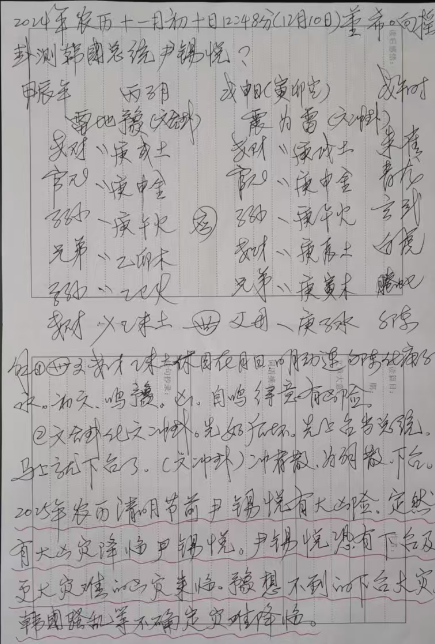 2024年农历十一月初十日12248分(12月10日)董希向摇
卦测韩國总统尹锡悦?
甲辰年 丙子月 戊申日(寅卯空) 戊午时
雷地豫(六合卦) 震为雷(六冲卦) 朱雀
妻财〃庚戌土 妻财〃庚戌土
官鬼〃庚申金 官鬼〃庚申金 青龙
子孙、庚午火 应 子孙、庚午火 玄武
兄弟〃乙卯木 妻财〃庚辰土 白虎
子孙〃乙巳火 兄弟〃庚寅木 螣蛇
妻财乂乙未土 世 父母、庚子水 勾陈
解①世爻妻财乙未土休囚在月日
水。初六,鸣豫。凶,自鸣得意有凶险
②六合卦化六冲卦。先好后坏。先上台当总统,
马上就下台了。(六冲卦)冲者散,为朋散,下台。
2025年农历清明节前尹锡悦有大凶险。定然
有大凶灾降临尹锡悦。尹锡悦恐有下台及
更大灾难的凶灾来临。豫想不到的下台大灾。
韩國骚乱等不确定灾难降临。